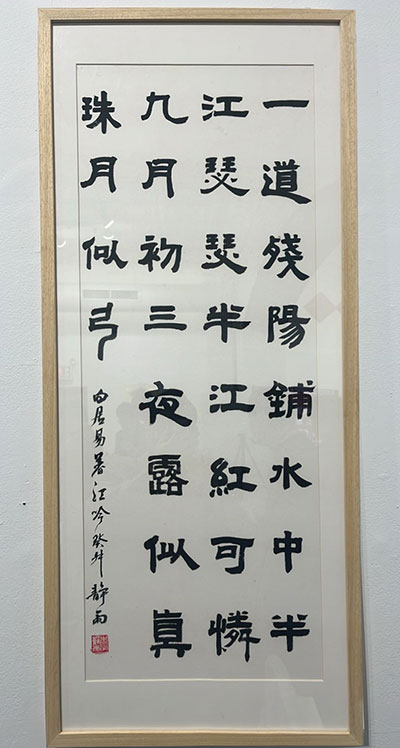 一道殘陽鋪水中半
江瑟瑟半江紅可憐
九月初三夜露似真
珠月似弓
白居易暮江吟癸卯靜雨